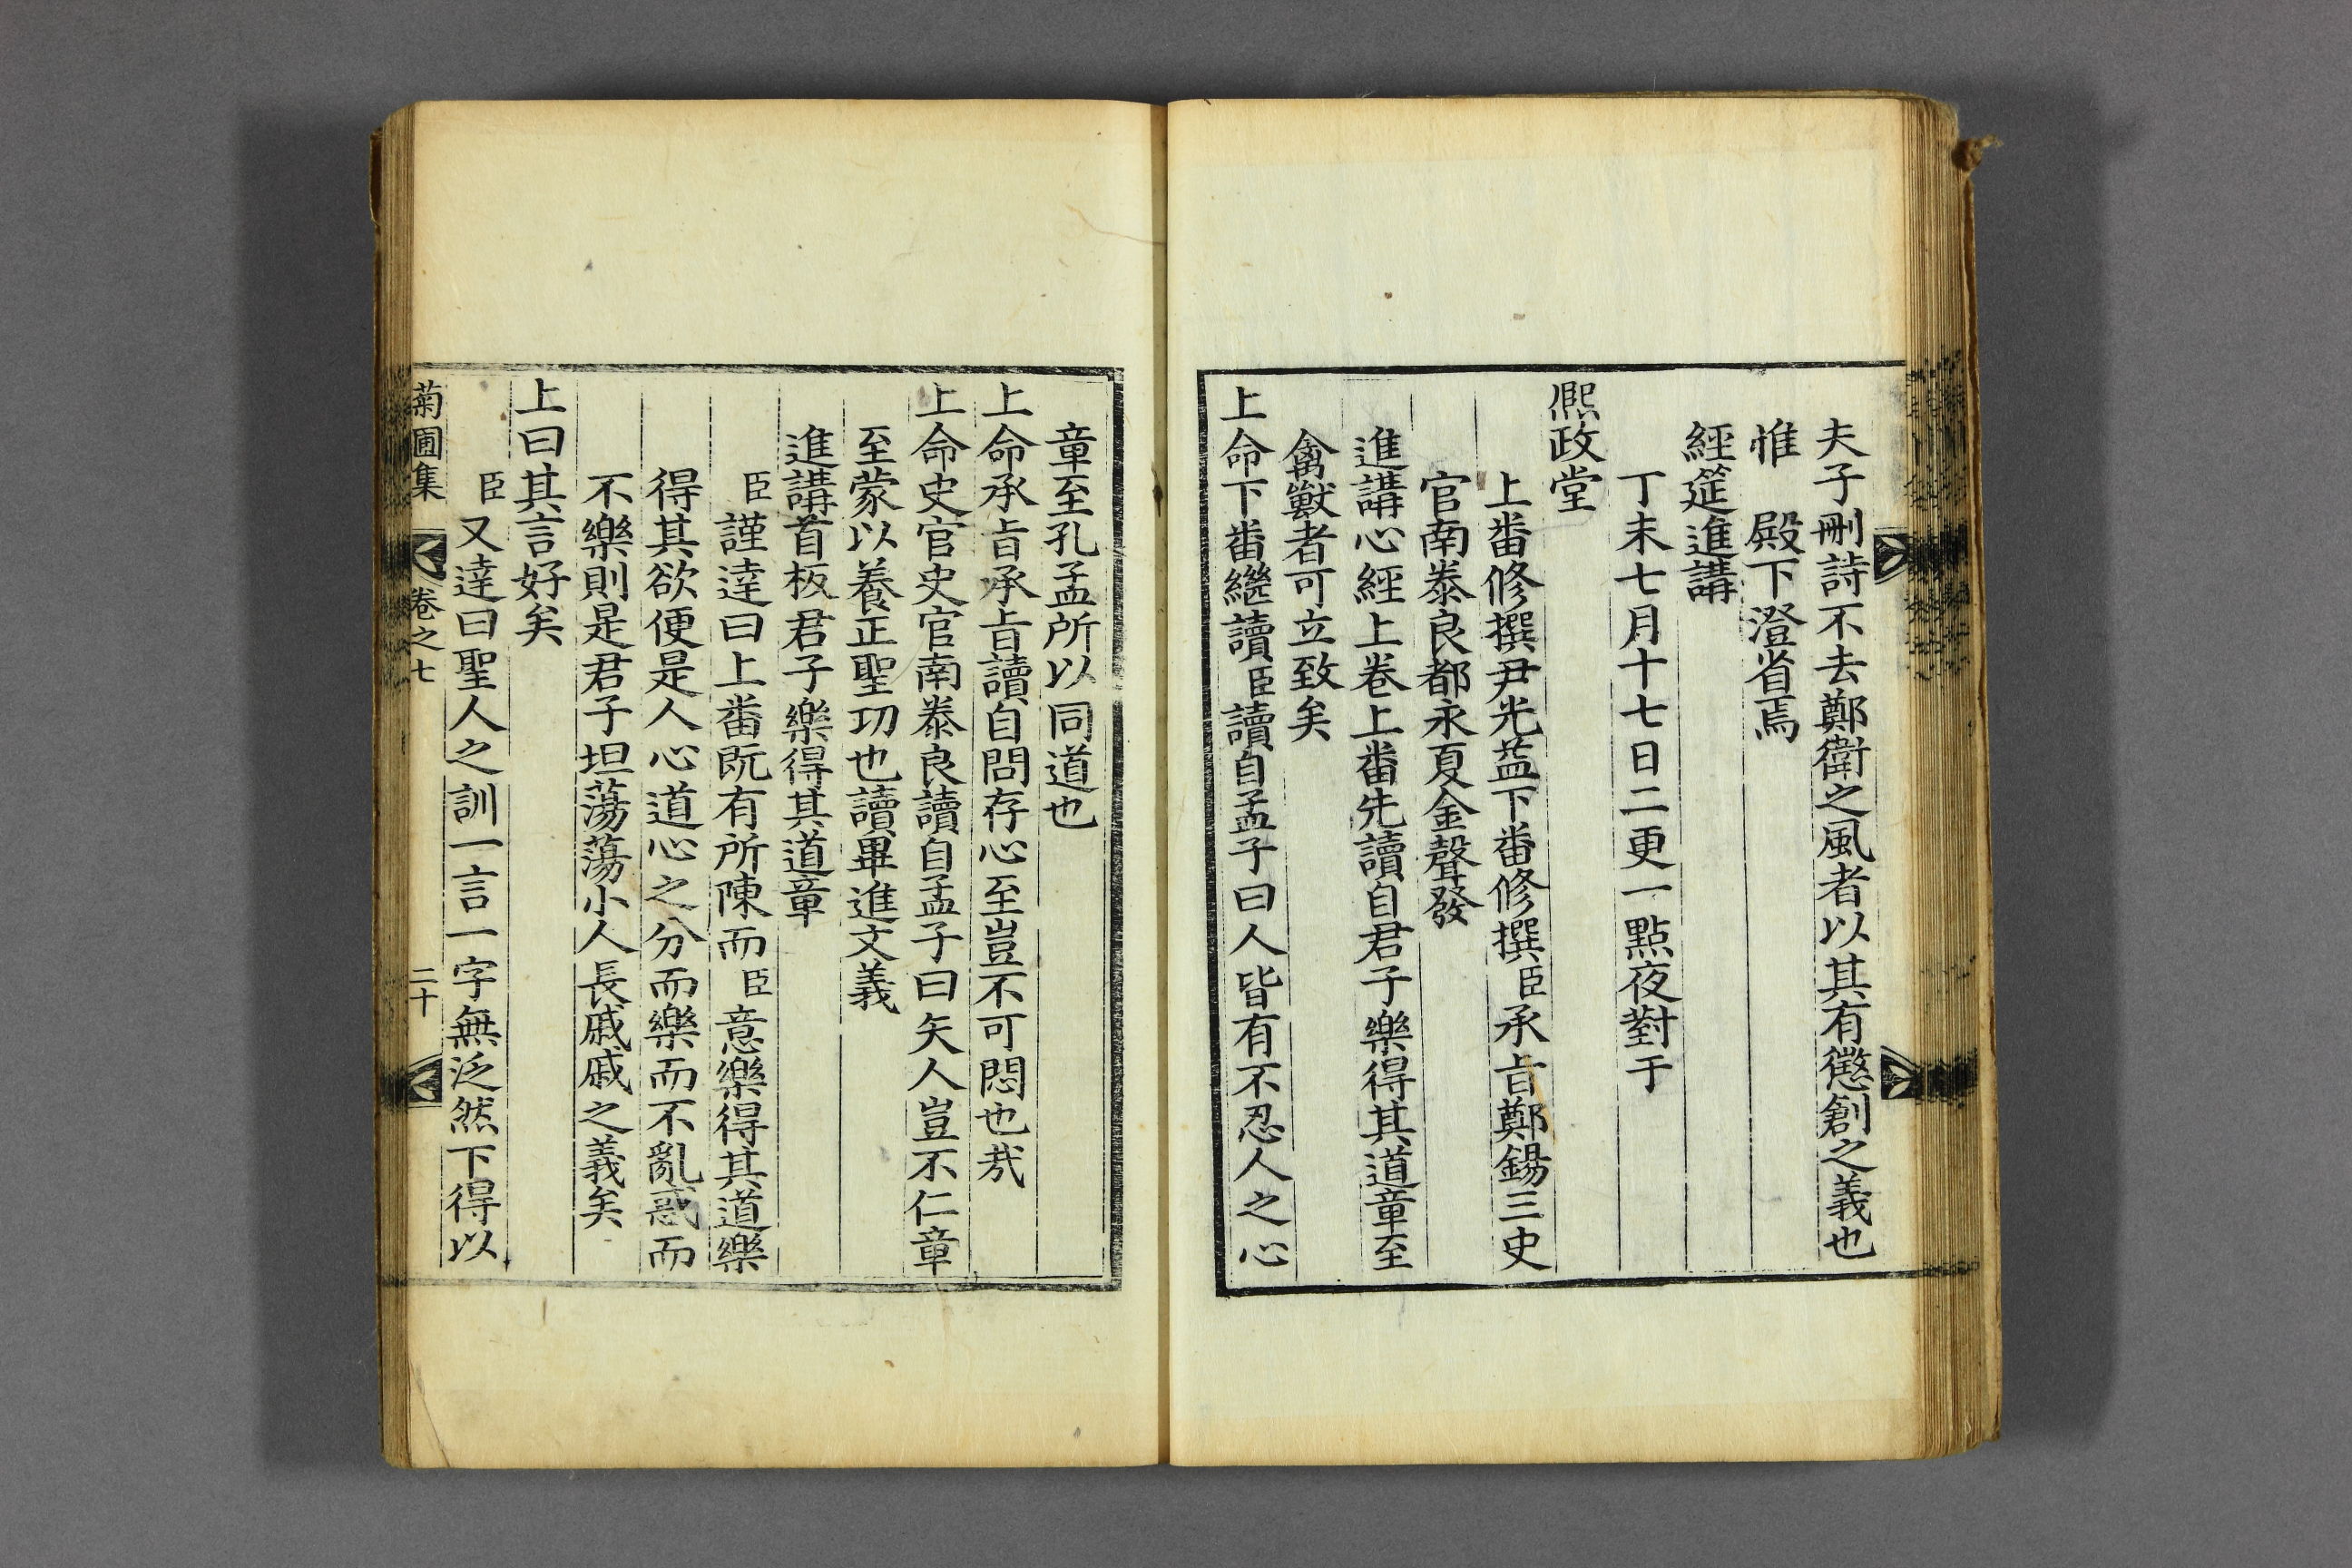 夫子刪詩不去鄭衛之風者以其有懲創之義也
惟 殿下澄省焉
經筵進講
丁未七月十七日二更一點夜對于
熙政堂
上番修撰尹光益下番修撰臣承旨鄭錫三史
官南泰良都永夏金聲發
進講心經上卷上番先讀自君子樂得其道章至
禽獸者可立致矣
上命下番繼讀臣讀自孟子曰人皆有不忍人之心
章至孔孟所以同道也
上命承旨承旨讀自問存心至豈不可悶也哉
上命史官史官南泰良讀自孟子曰矢人豈不仁章
至蒙以養正聖功也讀畢進文義
進講首板君子樂得其道章
臣謹達曰上番既有所陳而臣意樂得其道樂
得其欲便是人心道心之分而樂而不亂惑而
不樂則是君子坦蕩蕩小人長戚戚之義矣
上曰其言好矣
臣又達曰聖人之訓一言一字無泛然下得以
菊圃集 卷之七 二十